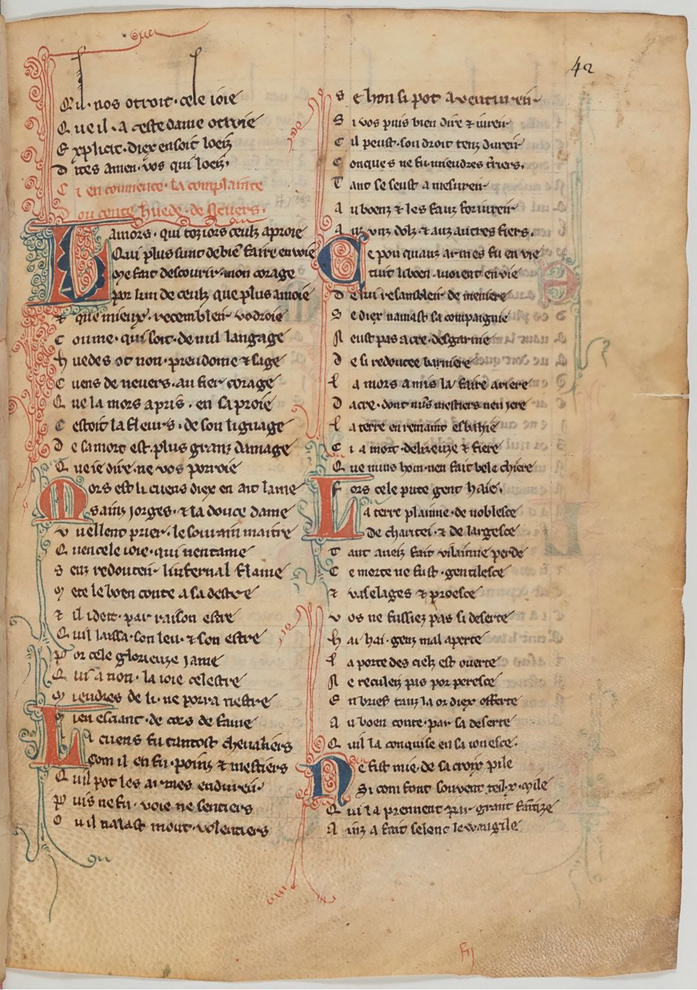 42
Qu il nos otroit cele ioie
Que il a ceste dame otroie
Explicit diex en soit loez
Dites amen vos qui loez
Ci en conmence la complainte
dou conte huede de Nevers
La mors qui toziors ceulz aproie
Qui plus sunt de bien faire en voie
Me fait descouvrir mon corage
Por l un de ceulz que plus amoie
Et que mieux recembleir vodroie
C oume qui soit de nul langage
Huedes ot non preudome et sage
Cuens de nevers au fier corage
Que la mors a pris en sa proie
C estoit la fleurs de son liguage
De sa mort est plus granz damage
Que ie dire ne vos porroie
Mors est li cuens diex en ait lame
Sainz iorges et la douce dame
Vuellent prier le souvrain maitre
Qu en cele ioie qui n entame
Senz redouteir l infernal flame
Mete le boen conte a sa destre
Et il i doit par raison estre
Qu il laissa son leu et son estre
Por cele glorieuze iame
Qui a non la ioie celestre
Mieudres de li ne porra nestre
Mien esciant de cors de fame
Li cuens fu tantost chevaliers
Com il en fu poinz et mestiers
Qu il pot les armes endureir
Puis ne fu voie ne sentiers
Ou il n alast mout volentiers
Se hon s i pot aventureir
Si vos puis bien dire et iureir
C il peust son droit tenz dureir
C onques ne fu mieudres terriers
Tant se seust amesureir
Au boenz et les fauz foriureir
Auz unz dolz et auz autres fiers
Ce pou qu auz armes fu en vie
Tuit li boen avoient envie
De lui resambleir de meniere
Se diex n amast sa compaignie
N eust pas acre desgarnie
De si redoutee baniere
La mors a mis la faire ariere
D acre dont nus mestiers nen iere
La terre en remaint esbahie
Ci a mort delireuze et fiere
Que nuns hom nen fait bele chiere
Fors cele pute gent haie
La terre plainne de noblesce
De charitei et de largesce
Tant aveiz fait vilainne perde
Ce morte ne fust gentilesce
Et vaselages et proesce
Vos ne fussiez pas si deserte
Hai hai genz mal aperte
La porte des cielz est overte
Ne reculeiz pas por peresce
En brief tanz la or diex offerte
Au boen conte par sa deserte
Qu il la conquise en sa ionesce
Ne fist mie de sa croix pile
Si com font souvent teil x mile
Qui la prennent par grant faintize
Ainz a fait selonc l ewangile